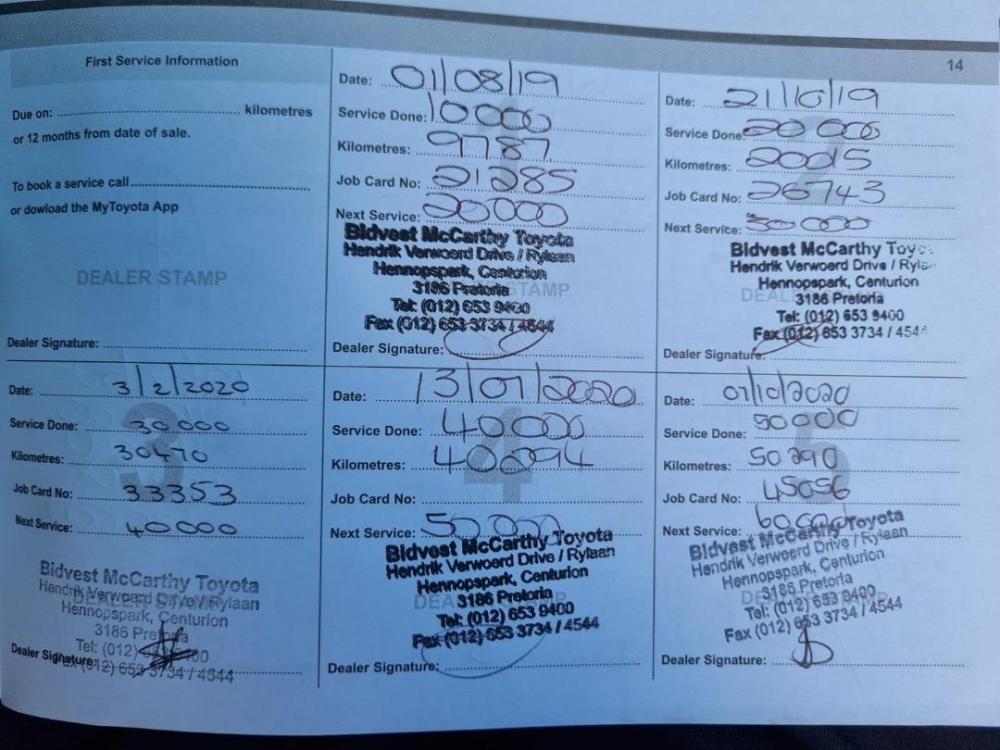 14
First Service Information
Due on: kilometres
or 12 months from date of sale.
To book a service call
or dowload the MyToyota App
DEALER STAMP
Dealer Signature:
Date: 01/08/19
Service Done: 10000
Kilometres: 9787
Job Card No: 21285
Next Service: 20000
Bidvest McCarthy Toyota
Hendrik Verwoerd Drive / Rylaan
Hennopspark, Centurion
3186 Pretoria
STAMP
Tel: (012) 653 9400
Fax (012) 653 3734 / 4544
Dealer Signature:
Date: 21/10/19
Service Done: 20 000
Kilometres: 20015
Job Card No: 26743
Next Service: 30 000
Bidvest McCarthy Toyo
Hendrik Verwoerd Drive / Ryla
Hennopspark, Centurion
3186 Pretoria
Tel: (012) 653 9400
Fax (012) 653 3734 / 454
Dealer Signature:
Date: 3/2/2020
Service Done: 30 000
Kilometres: 30470
Job Card No: 33353
Next Service: 40000
3
Bidvest McCarthy Toyota
Hendrik Verwoerd Drive / Rylaan
DEALER STAMP
Hennopspark, Centurion
3186 Pretoria
Tel: (012) 00
Dealer Signature:
Fax (012) 653 3734 / 4544
Date: 13/07/2020
Service Done: 40000
Kilometres: 40294
4
Job Card No:
Next Service: 50000
Bidvest McCarthy Toyota
Hendrik Verwoerd Drive / Rylaan
Hennopspark, Centurion
3186 Pretoria
Tel: (012) 653 9400
Fax (012) 653 3734 / 4544
Dealer Signature:
Date: 07/10/2020
Service Done: 50000
Kilometres: 50290
5
Job Card No: 45056
Next Service: 60000
Bidvest McCarthy Toyota
Hendrik Verwoerd Drive / Rylaan
Hennopspark, Centurion
3186 Pretoria
Tel: (012) 653 9400
Fax (012) 653 3734 / 4544
Dealer Signature: